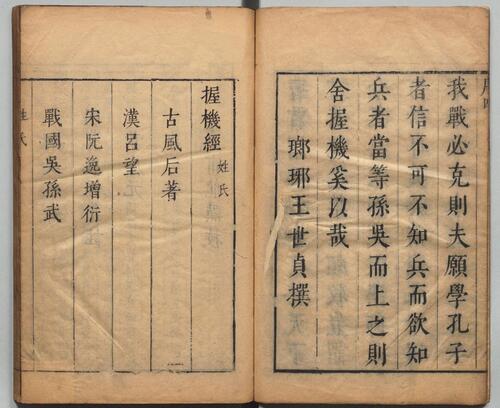 我戰必克則夫願學孔子
者信不可不知兵而欲知
兵者當等孫吳而上之則
舍握機奚以哉
瑯琊王世貞撰
握機經
姓氏
古風后著
漢呂望
宋阮逸增衍
戰國吳孫武
姓氏